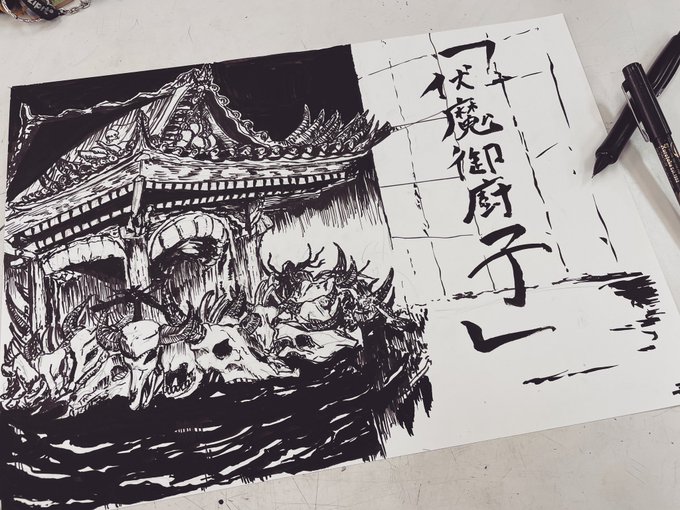 「伏魔御廚子」